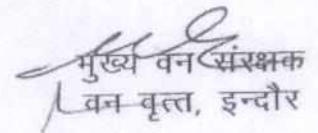 मुख्य वन संरक्षक
वन वृत्त, इन्दौर